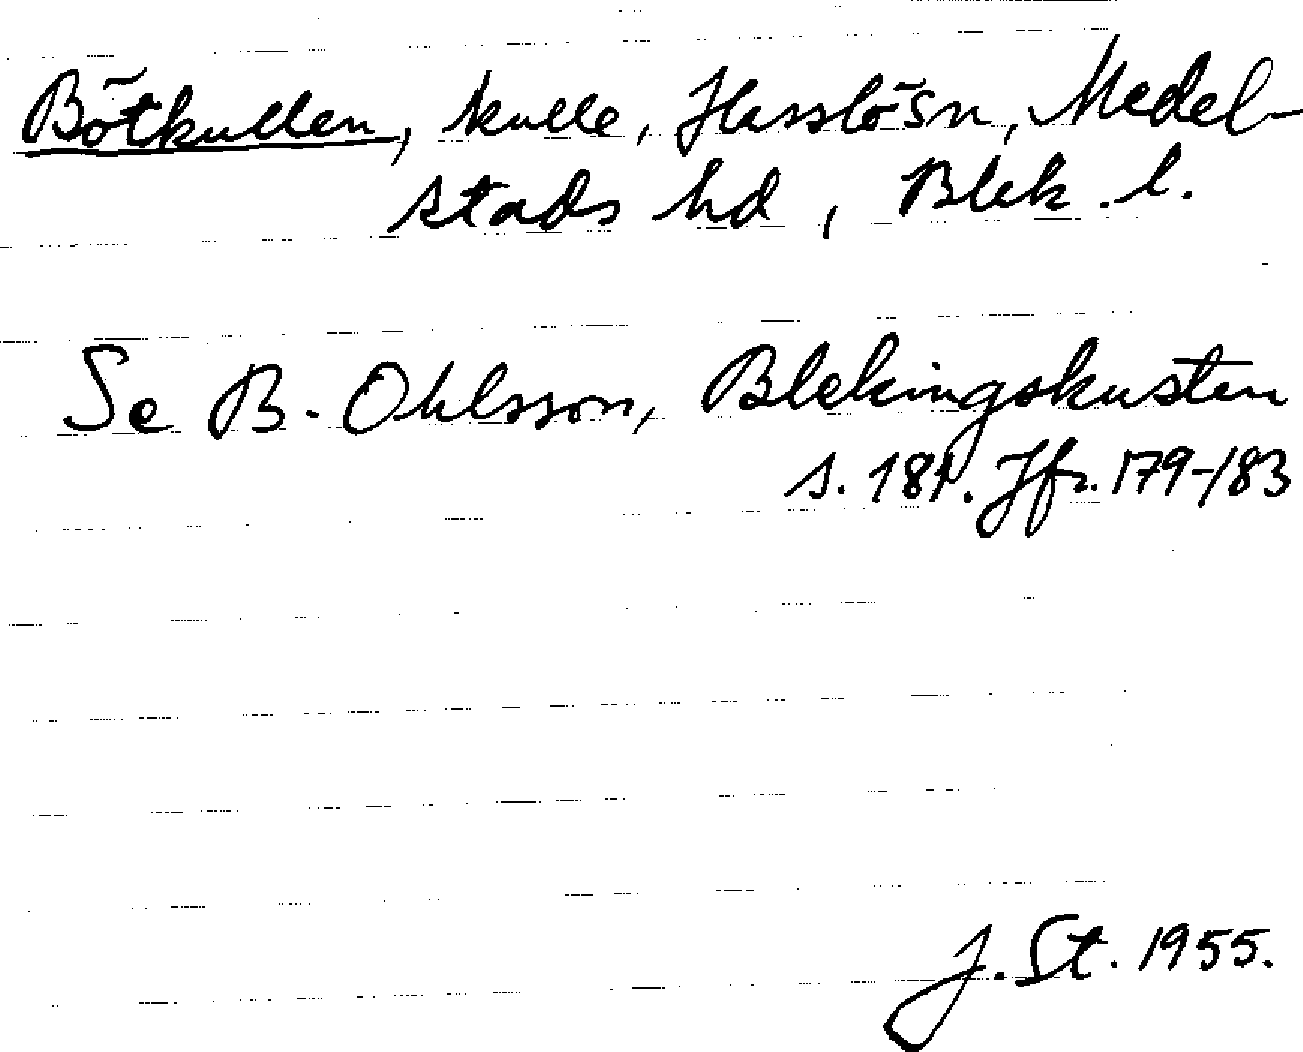 Bötkullen, kulle, Hasslö sn, Medel-
stads hd, Blek. l.
Se B. Ohlsson, Blekingskusten
s. 181. Jfr. 179-183
J. St. 1955.